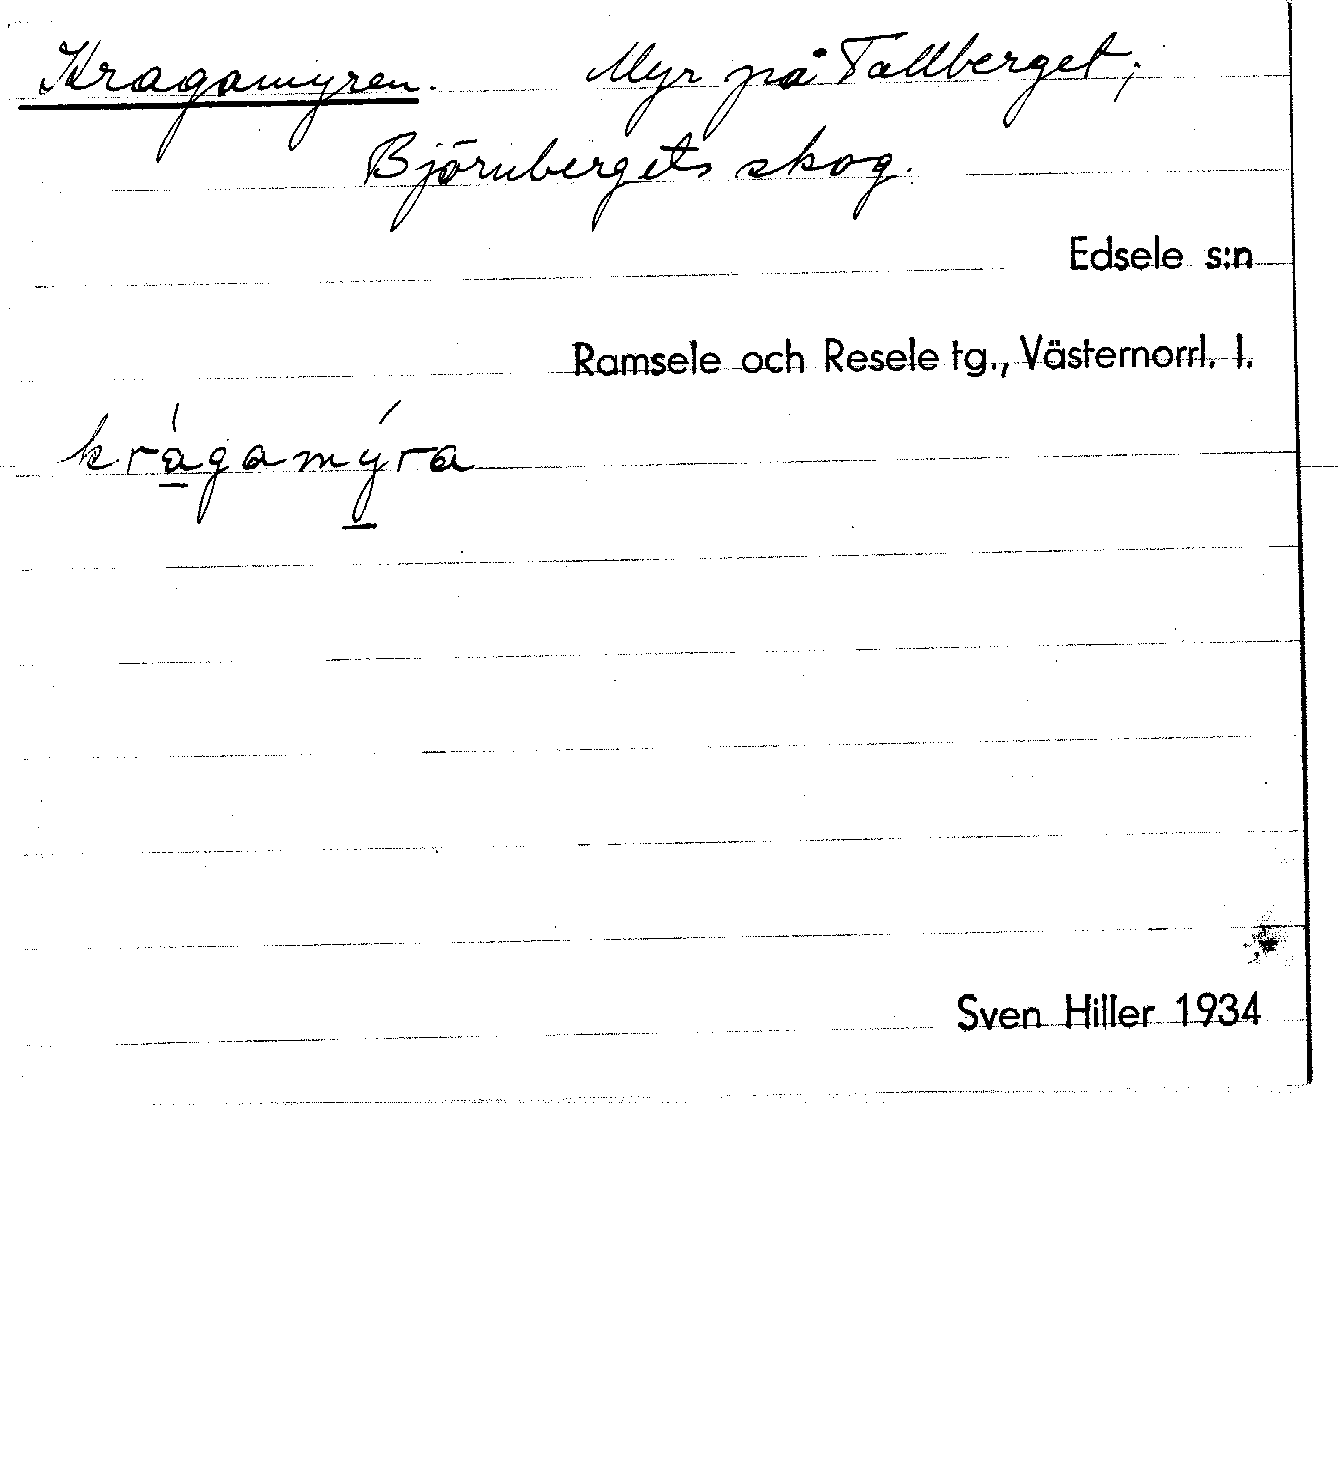 Kragamyren. Myr på Tallberget;
Björnbergets skog.
Edsele s:n
Ramsele och Resele tg., Västernorrl. l.
krá̱gamý̱ra
Sven Hiller 1934